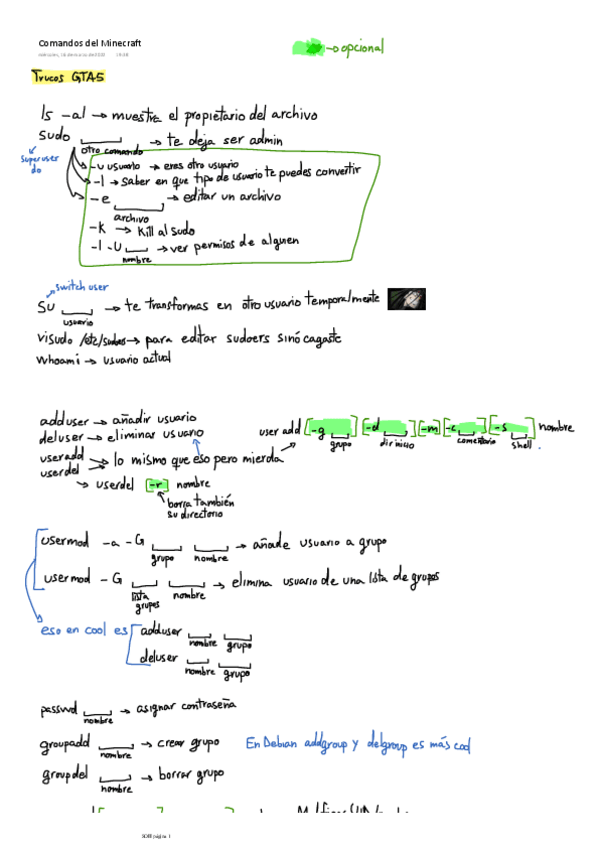 Comandos del Minecraft
→ opcional
Trucos GTA5
ls -al → muestra el propietario del archivo
sudo ___ → te deja ser admin
otro comando
super user
do
-u usuario → eres otro usuario
-l → saber en que tipo de usuario te puedes convertir
-e ___ → editar un archivo
archivo
-k → Kill al sudo
-l -U ___ → ver permisos de alguien
nombre
switch user
su ___ → te transformas en otro usuario temporalmente
usuario
visudo /etc/sudoers → para editar sudoers sinó cagaste
whoami → usuario actual
adduser → añadir usuario
deluser → eliminar usuario
useradd → lo mismo que eso pero mierda
userdel
user add [-g ___] [-d ___] [-m] [-c ___] [-s ___] nombre
grupo dir inicio comentario shell
→ userdel [-r] nombre
borra también
su directorio
usermod -a -G ___ ___ → añade usuario a grupo
grupo nombre
usermod -G ___ ___ → elimina usuario de una lista de grupos
lista nombre
grupos
eso en cool es adduser ___ ___
nombre grupo
deluser ___ ___
nombre grupo
passwd ___ → asignar contraseña
nombre
groupadd ___ → crear grupo En Debian addgroup y delgroup es más cool
nombre
groupdel ___ → borrar grupo
nombre
SOM página 1